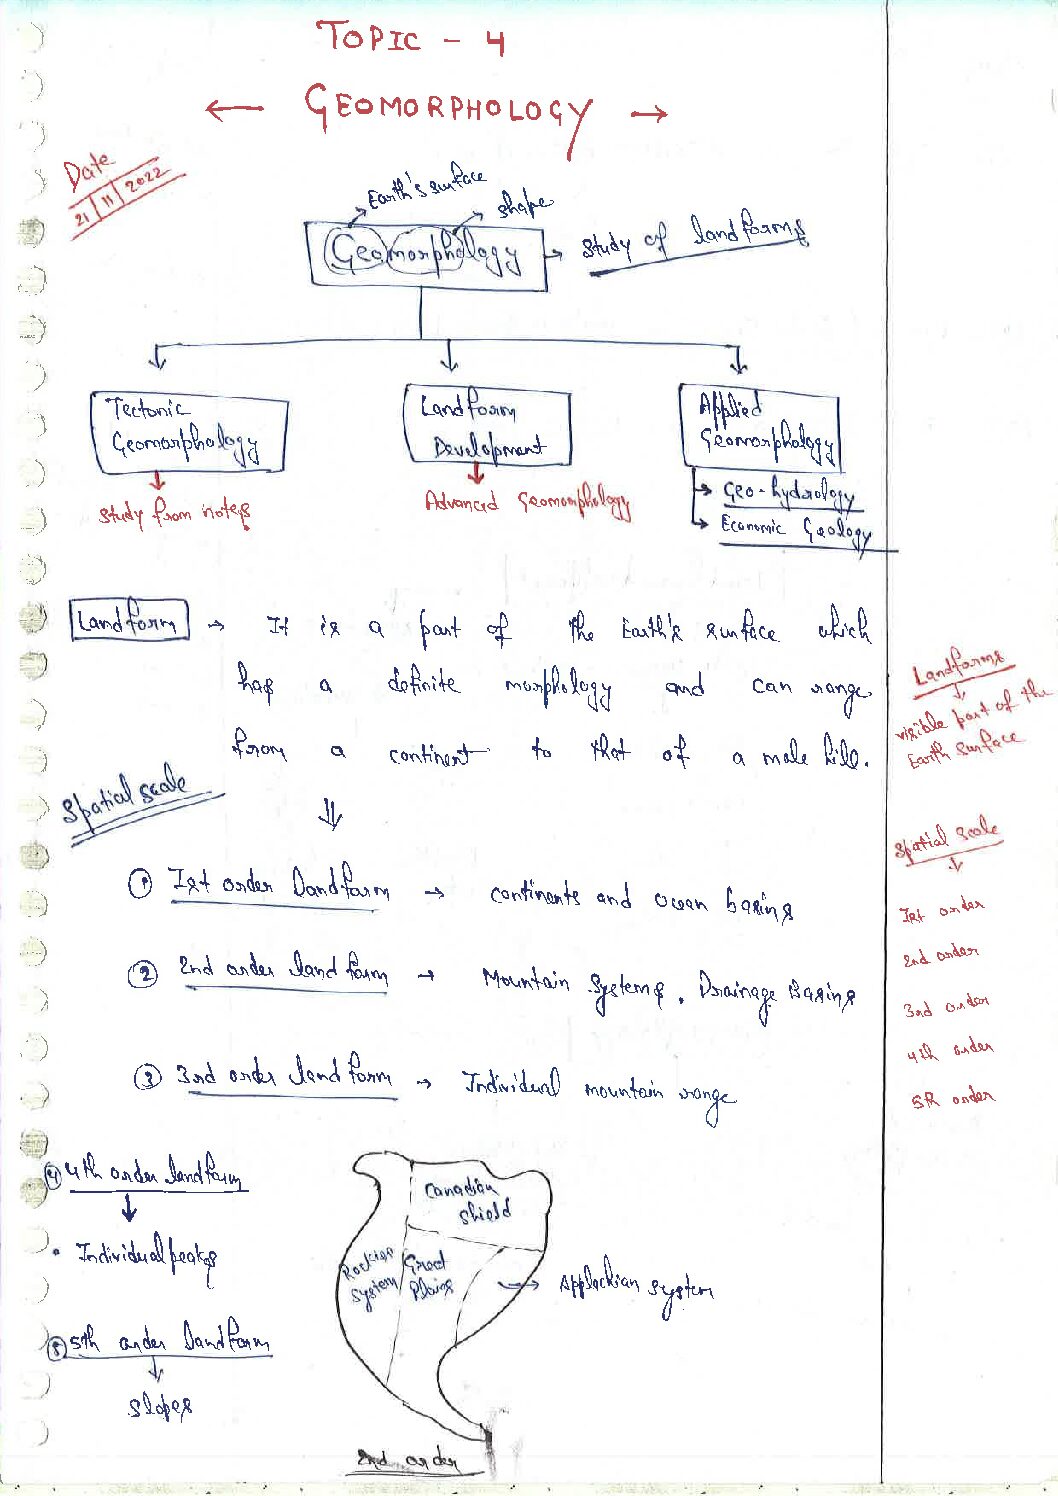 TOPIC - 4
← GEOMORPHOLOGY →
Date
21 | 11 | 2022
Earth's surface
shape
Geomorphology → Study of landforms
Tectonic
Geomorphology
Study from notes
Landform
Development
Advanced Geomorphology
Applied
Geomorphology
→ Geo-hydrology
→ Economic Geology
Landform → It is a part of the Earth's surface which
has a definite morphology and can range
from a continent to that of a mole hill.
Landforms
visible part of the
Earth surface
Spatial scale
① Ist order Landform → continents and ocean basins
② 2nd order landform → Mountain Systems, Drainage Basins
③ 3rd order landform → Individual mountain range
Spatial scale
Ist order
2nd order
3rd order
4th order
5th order
④ 4th order landform
• Individual peaks
⑤ 5th order Landform
slopes
Canadian
shield
Rockies
system
Great
Plains
→ Applachian system
2nd order